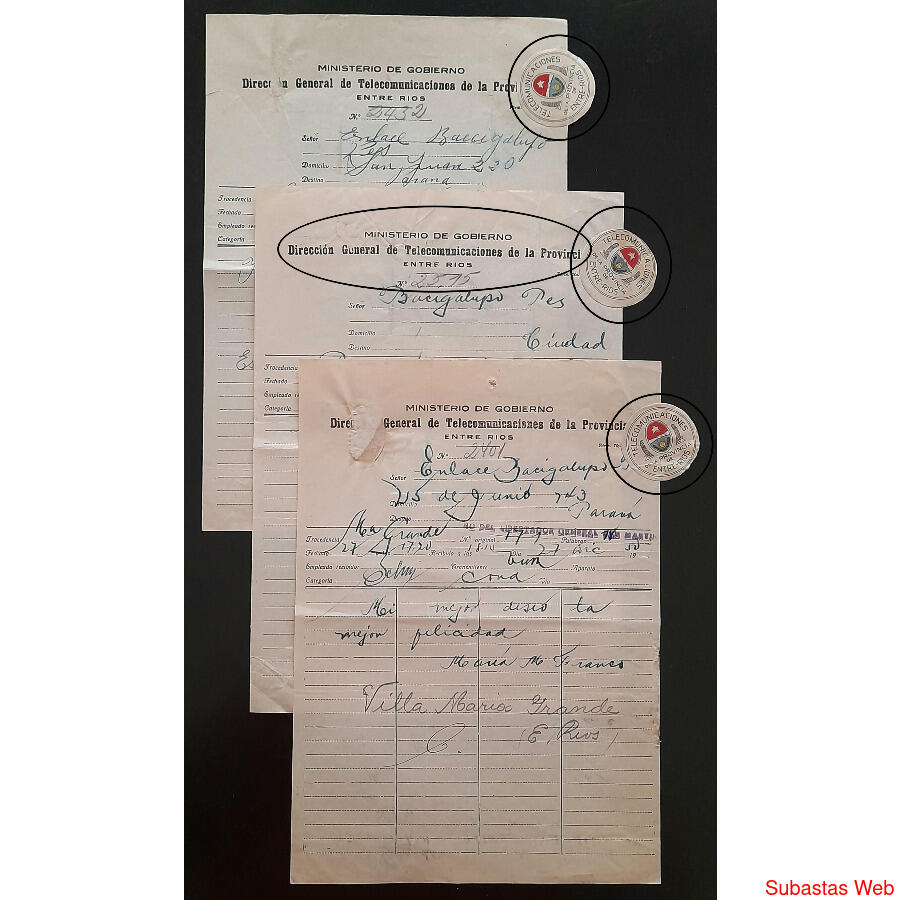 MINISTERIO DE GOBIERNO
Dirección General de Telecomunicaciones de la Provi
ENTRE RIOS
Nº 2432
Señor Enlace Baccigalupo
Pes
Domicilio San Juan 220
Destino Paraná
Procedencia
Fechado
Empleado
Categoría
TELECOMUNICACIONES DE LA PROVINCIA DE ENTRE-RIOS
MINISTERIO DE GOBIERNO
Dirección General de Telecomunicaciones de la Provinci
ENTRE RIOS
Nº 2515
Señor Bacigalupo Pes
Domicilio
Destino Ciudad
Procedencia
Fechado
Empleado re
Categoría
TELECOMUNICACIONES DE LA PROVINCIA DE ENTRE-RIOS
MINISTERIO DE GOBIERNO
Direc General de Telecomunicaciones de la Provincia
ENTRE RIOS
Nº 2401
Señor Enlace Bacigalupo
Domicilio 15 de Junio 743
Destino Paraná
TELECOMUNICACIONES DE LA PROVINCIA DE ENTRE-RIOS
ÑO DEL LIBERTADOR GENERAL SAN MARTI
Procedencia Ma Grande Nº original Palabras
Fechado 27 1720 Recibido a las 1810 Día 27 Dic 19 50
Empleado receptor Transmitente Aparato
Categoría Vía
Mi mejor deseo la
mejor felicidad
María M Franco
Villa Maria Grande
(E. Rios)
Subastas Web